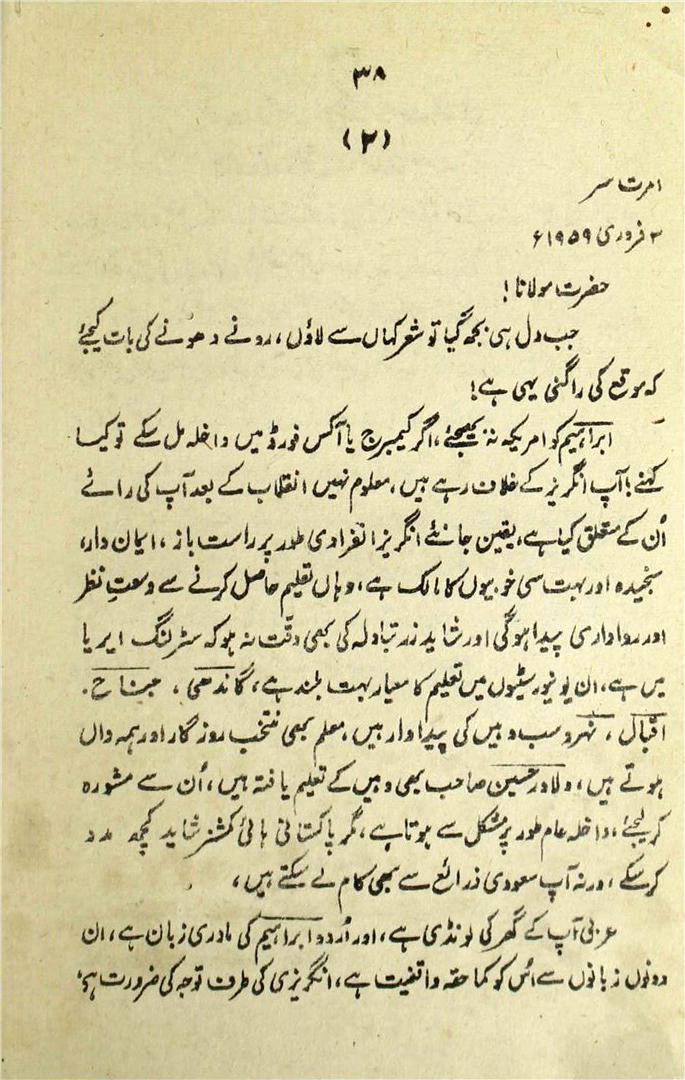 ۳۸
(۲)
امرت سر
۳ فروری ۱۹۵۹ء
حضرت مولانا!
جب دل ہی بجھ گیا تو شعر کہاں سے لاؤں، رونے دھونے کی بات کیجئے
کہ موقع کی راگنی یہی ہے!
ابراہیم کو امریکہ نہ بھیجئے، اگر کیمبرج یا آکس فورڈ میں داخلہ مل سکے تو کیا
کہنے! آپ انگریز کے خلاف رہے ہیں، معلوم نہیں انقلاب کے بعد آپ کی رائے
اُن کے متعلق کیا ہے، یقین جانئے انگریز انفرادی طور پر راست باز، ایمان دار،
سنجیدہ اور بہت سی خوبیوں کا مالک ہے، وہاں تعلیم حاصل کرنے سے وسعتِ نظر
اور رواداری پیدا ہوگی اور شاید زر تبادلہ کی بھی دقّت نہ ہو کہ سٹرلنگ ایریا
میں ہے، ان یونیورسٹیوں میں تعلیم کا معیار بہت بلند ہے، گاندھی، جناح،
اقبال، نہرو سب وہیں کی پیداوار ہیں، معلم بھی منتخب روزگار اور ہمہ داں
ہوتے ہیں، دلاور حسین صاحب بھی وہیں کے تعلیم یافتہ ہیں، اُن سے مشورہ
کر لیجئے، داخلہ عام طور پر مشکل سے ہوتا ہے، مگر پاکستانی ہائی کمشنر شاید کچھ مدد
کر سکے، ورنہ آپ سعودی ذرائع سے بھی کام لے سکتے ہیں،
عربی آپ کے گھر کی لونڈی ہے، اور اُردو ابراہیم کی مادری زبان ہے، ان
دونوں زبانوں سے اُس کو کما حقہ واقفیت ہے، انگریزی کی طرف توجہ کی ضرورت ہے،